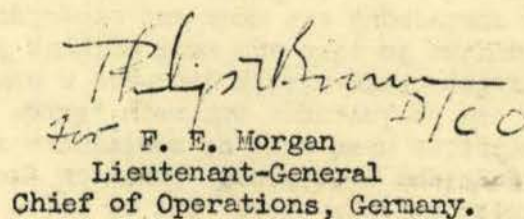 D/CO
for F. E. Morgan
Lieutenant-General
Chief of Operations, Germany.